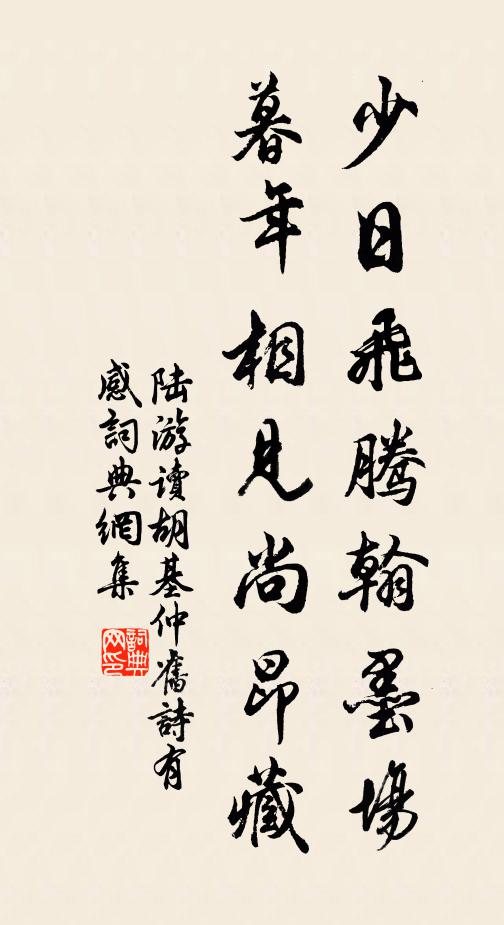 少日飛騰翰墨場
暮年相見尚昂藏
陸游讀胡基仲舊詩有
感詞典網集
詞典网印